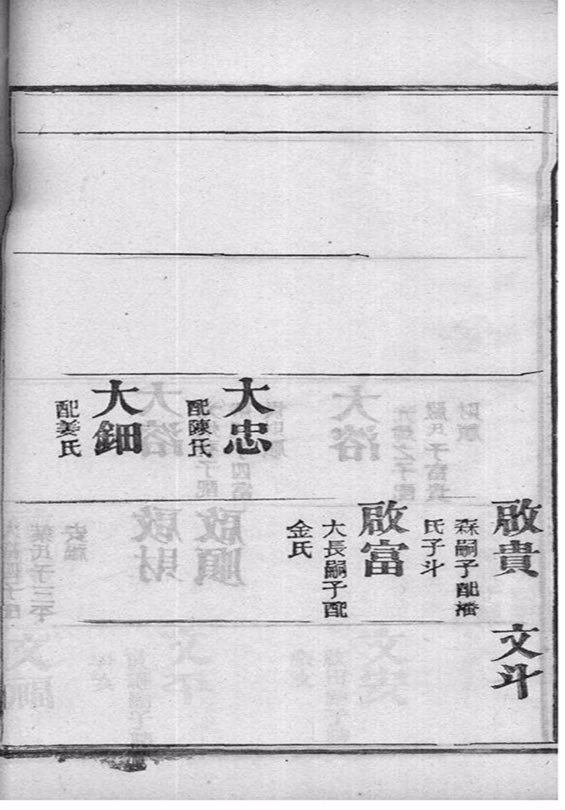 啟貴
森嗣子配潘
氏子斗
文斗
啟富
大長嗣子配
金氏
大忠
配陳氏
大鈿
配姜氏